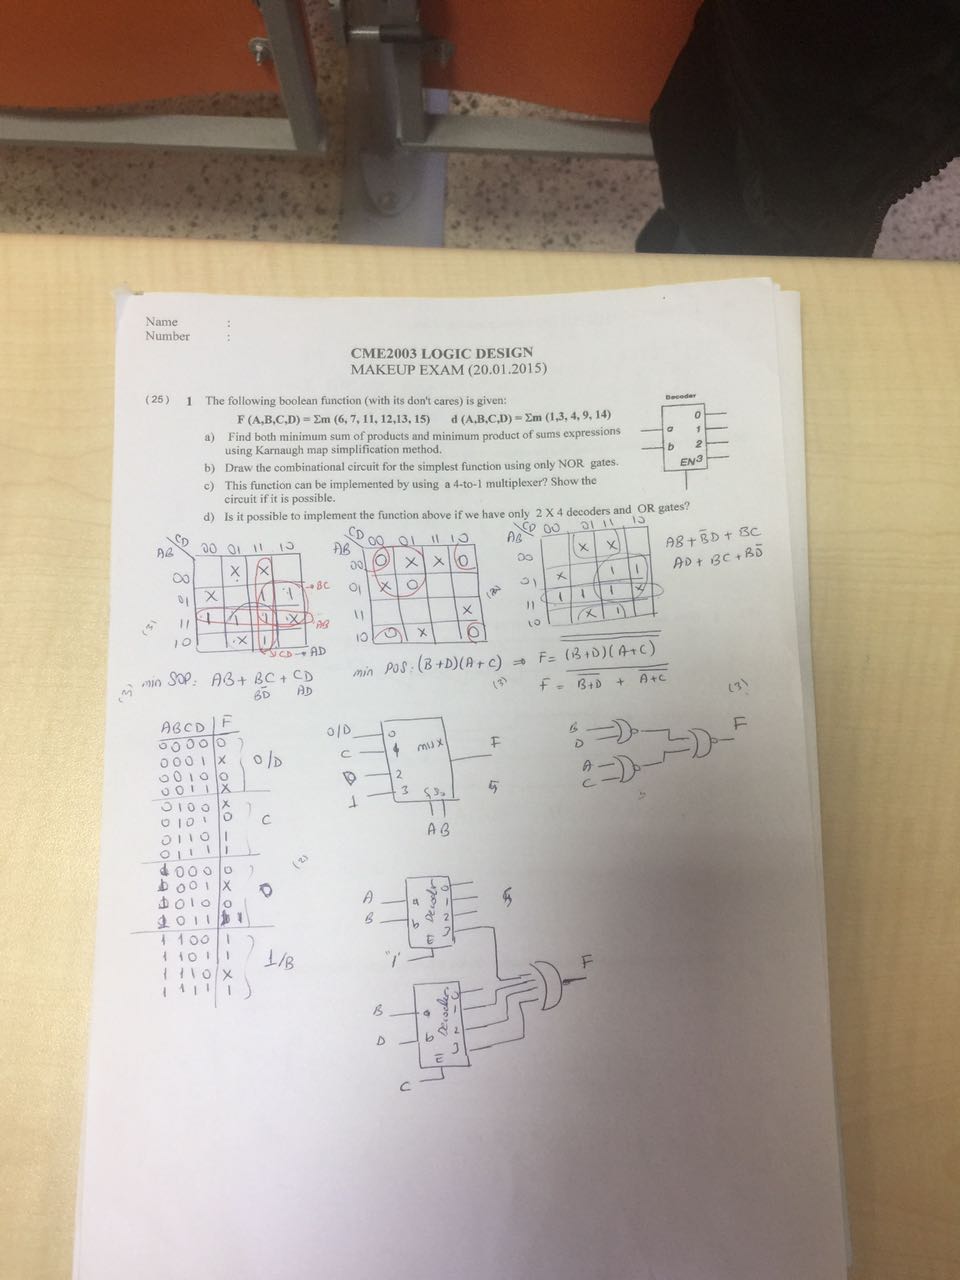 Name :
Number :
CME2003 LOGIC DESIGN
MAKEUP EXAM (20.01.2015)
(25) 1 The following boolean function (with its don't cares) is given:
F (A,B,C,D) = Σm (6, 7, 11, 12,13, 15) d (A,B,C,D) = Σm (1,3, 4, 9, 14)
a) Find both minimum sum of products and minimum product of sums expressions
using Karnaugh map simplification method.
b) Draw the combinational circuit for the simplest function using only NOR gates.
c) This function can be implemented by using a 4-to-1 multiplexer? Show the
circuit if it is possible.
d) Is it possible to implement the function above if we have only 2 X 4 decoders and OR gates?
Decoder
0
a 1
b 2
EN 3
CD
AB 00 01 11 10
00 X X
01 X 1 1
11 1 1 1 X
10 X 1
BC
AB
CD → AD
(3)
CD
AB 00 01 11 10
00 0 X X 0
01 X 0
11 X
10 0 X 0
CD
AB 00 01 11 10
00 X X
01 X 1 1
11 1 1 1 X
10 X 1
AB + B̅D + BC
AD + BC + BD̅
(3) min SOP: AB + BC + CD
BD̅ AD
min POS: (B+D)(A+C) ⇒ F = (B+D)(A+C)
(3)
F = B+D + A+C
(3)
ABCD F
0000 0
0001 X
0010 0
0011 X
0/D
0100 X
0101 0
0110 1
0111 1
C
1000 0
1001 X
1010 0
1011 1
D
1100 1
1101 1
1110 X
1111 1
1/B
(2)
0/D 0
C 1
D 2
1 3
MUX
F
A B
B
D
A
C
F
A a
B b
Decoder
0
1
2
3
E
"1"
B a
D b
Decoder
0
1
2
3
E
C
F